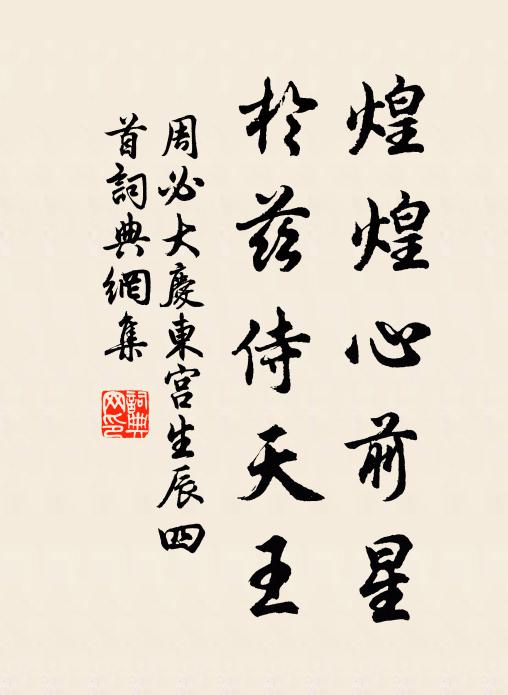 煌煌心前星
於茲侍天王
周必大慶東宮生辰四
首詞典網集
詞典
网印